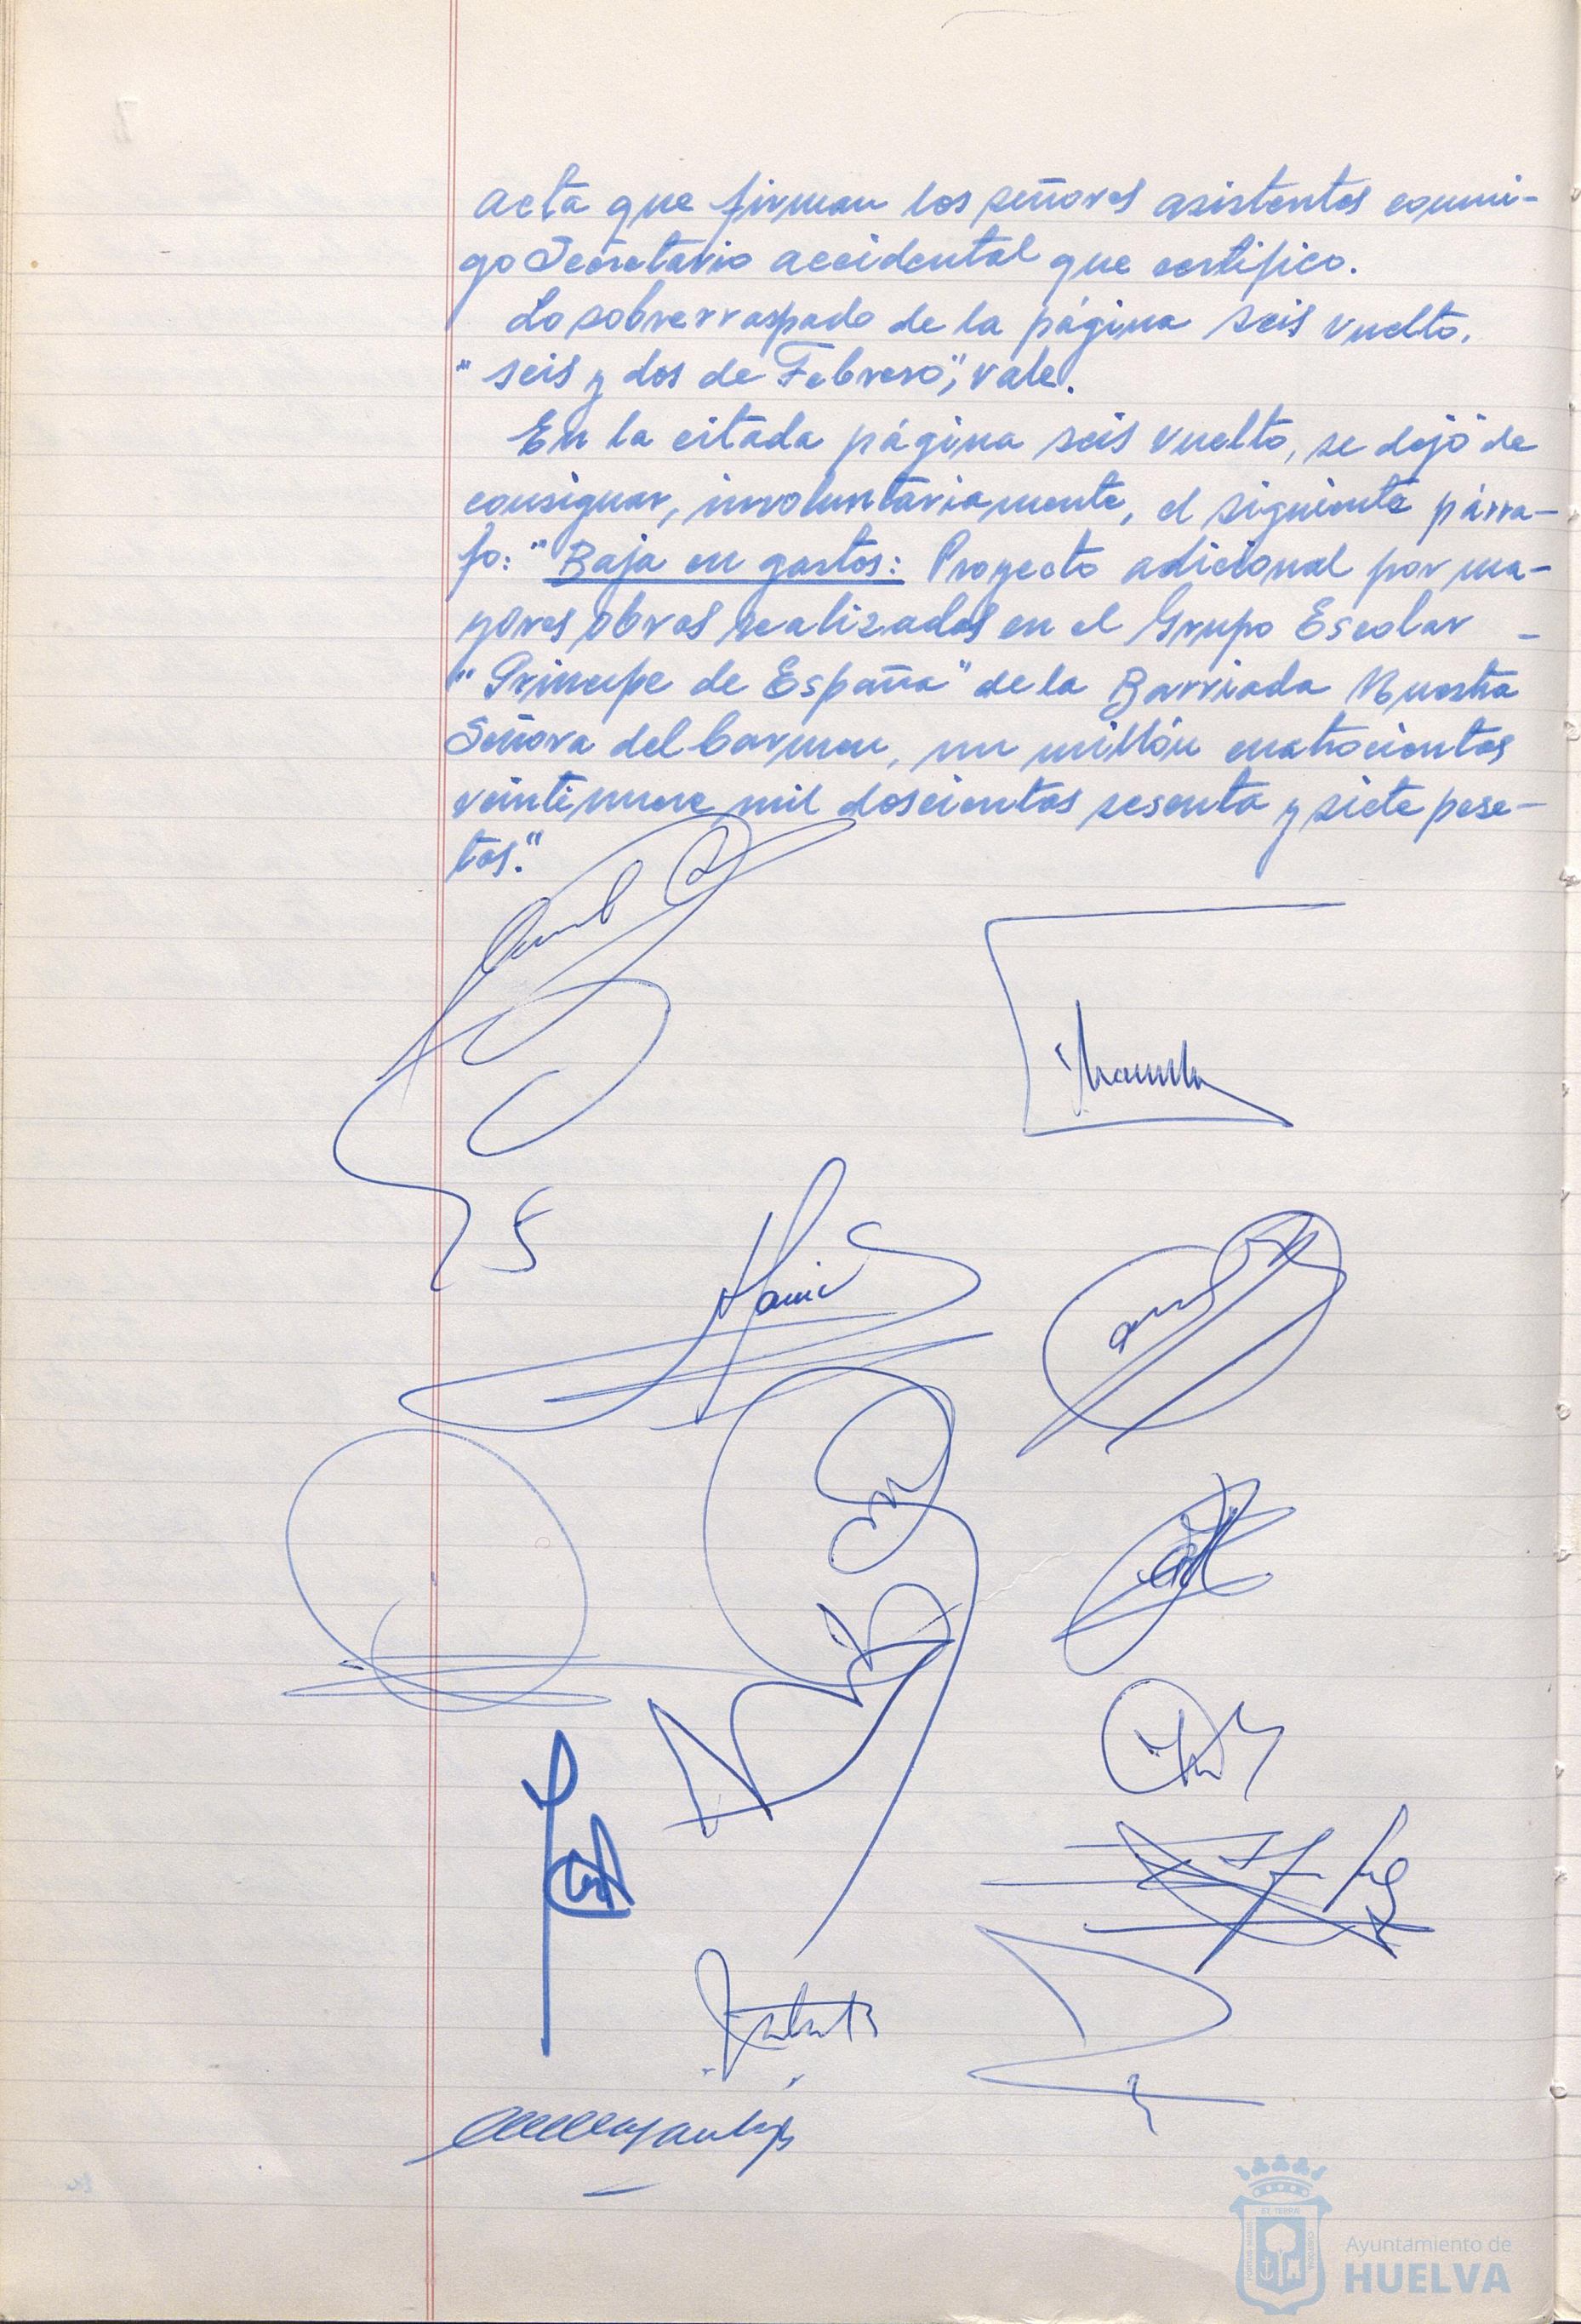 acta que firman los señores asistentes conmi-
go Secretario accidental que certifico.
Lo sobrerraspado de la página seis vuelto.
"seis y dos de Febrero", vale.
En la citada página seis vuelto, se dejó de
consignar, involuntariamente, el siguiente párra-
fo: "Baja en gastos: Proyecto adicional por ma-
yores obras realizadas en el Grupo Escolar -
"Príncipe de España" de la Barriada Nuestra
Señora del Carmen, un millón cuatrocientas
veintinueve mil doscientas sesenta y siete pese-
tas."
Ayuntamiento de
HUELVA